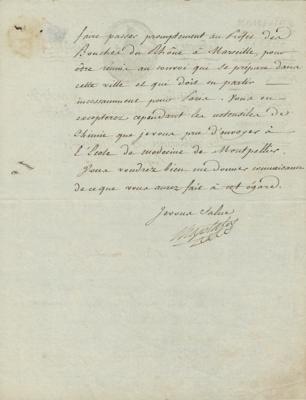 faire passer promptement au Préfet des
Bouches du Rhône à Marseille, pour
être réunie au convoi que se prépare dans
cette ville et que doit en partir
incessamment pour Vous en
excepterez cependant les ustensiles de
Chimie que je vous prie d'envoyer à
l'Ecole de médecine de Montpellier.
Vous voudrez bien me donner connaissance
de ce que vous aurez fait à cet égard.
Je vous Salue